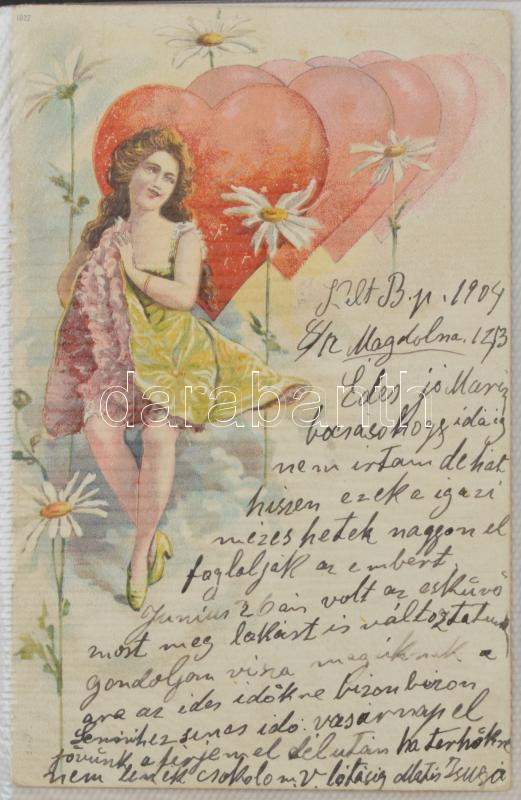 1027
Kelt B.p. 1904
8/12 Magdolna. 12/3
Édes jó Mariz
bocsásohogy idáig
nem irtam de hát
hiszen ezek a igazi
mézes hetek nagyon el
foglalják az embert,
Junius 26 án volt az esküvő
most meg lakást is változtatun
gondoljan visza magúknak a
ára az ides időkre bizon bizon
senmihez sincs idő. vasárnap el
jövünk a férjemel délután ha terhökre
nem lenek csokolom. V. látásig Matis Zsuzsa
darabanth